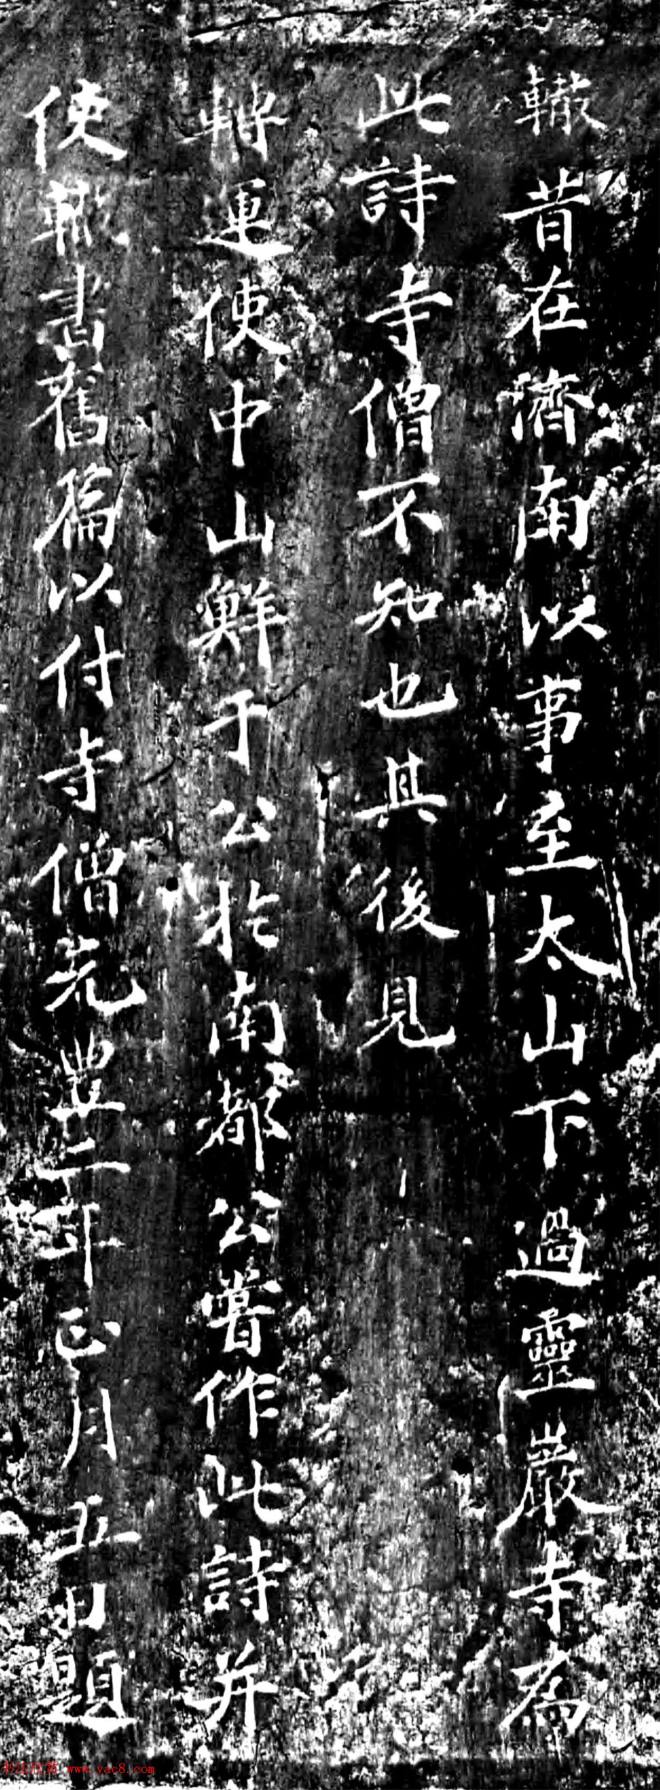 轍昔在濟南以事至太山下過靈巖寺為
此詩寺僧不知也其後見
轉運使中山鮮于公於南都公嘗作此詩并
使轍書舊篇以付寺僧元豊二年正月五日題
www.yac8.com